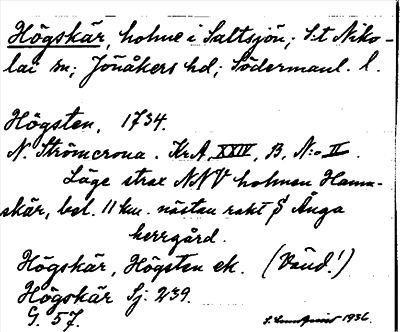 Högskär, holme i Saltsjön; S:t Niko-
lai sn; Jönåkers hd; Södermanl. l.
Högsten, 1734.
N. Strömcrona. Kr.A, XXIV, B, N:o II.
Läge strax NNV holmen Hamn-
skär, bel. 11 km. nästan rakt S Änga
herrgård.
Högskär, Högsten ek. (Vänd!)
Högskär Sj. 239.
G. 57.
S. Lundqvist 1936.